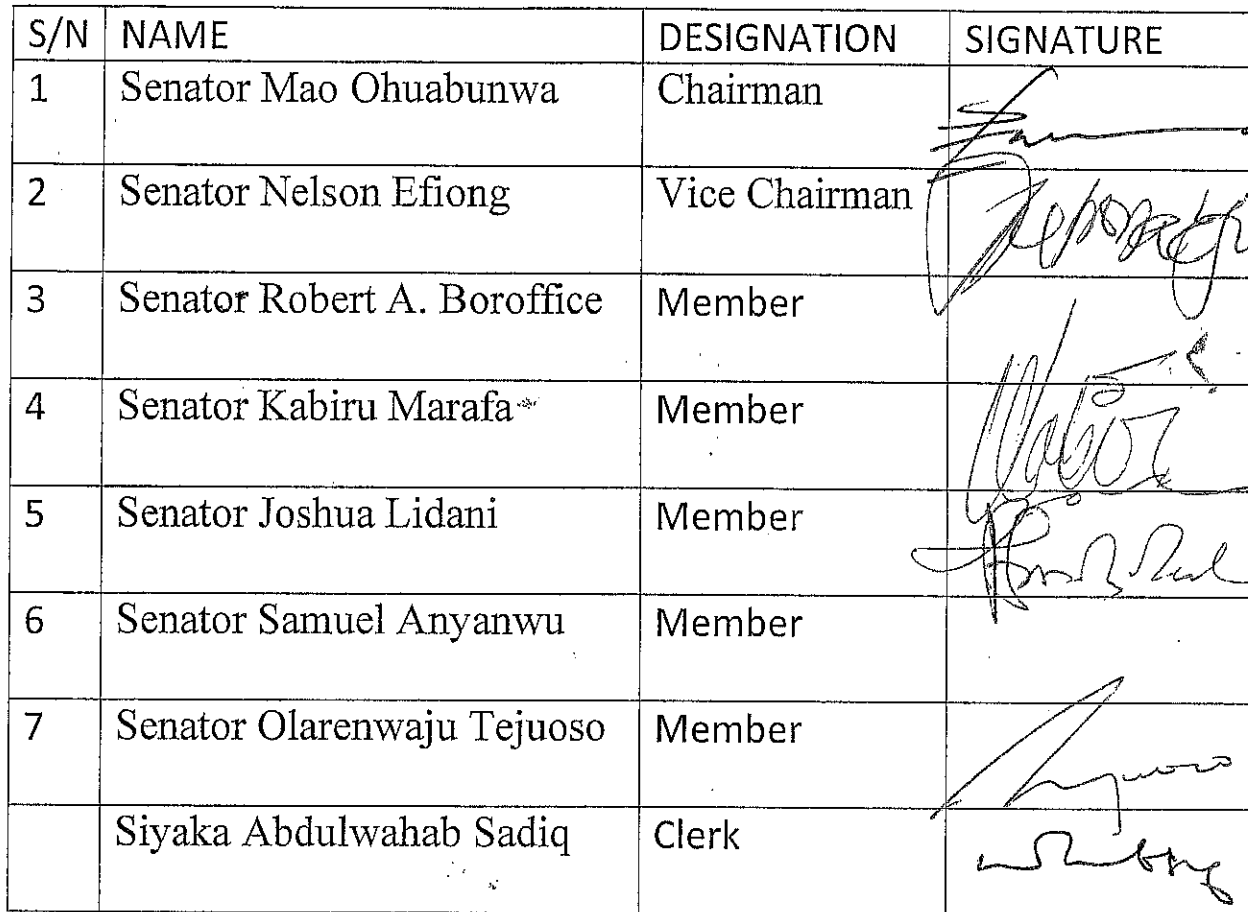 S/N NAME DESIGNATION SIGNATURE
1 Senator Mao Ohuabunwa Chairman
2 Senator Nelson Efiong Vice Chairman
3 Senator Robert A. Boroffice Member
4 Senator Kabiru Marafa Member
5 Senator Joshua Lidani Member
6 Senator Samuel Anyanwu Member
7 Senator Olarenwaju Tejuoso Member
Siyaka Abdulwahab Sadiq Clerk